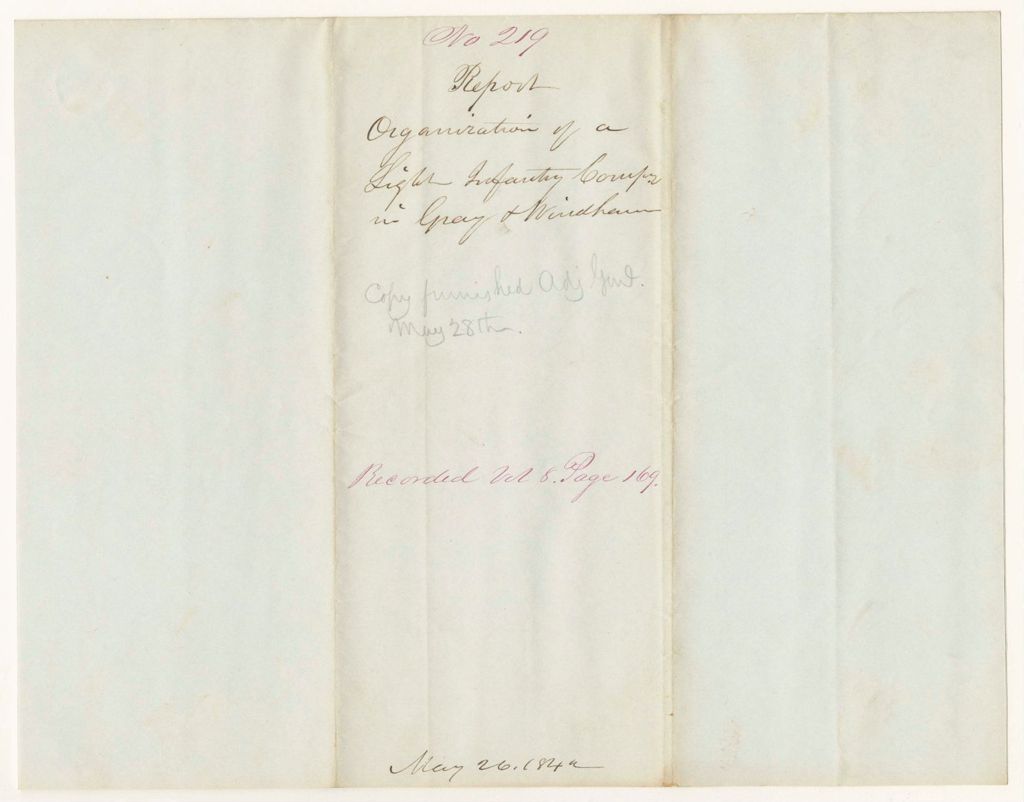 No 219
Report
Organization of a
Light Infantry Compy
in Gray & Windham
Copy furnished Adj Genl.
May 28th.
Recorded Vol 8. Page 169.
May 26.